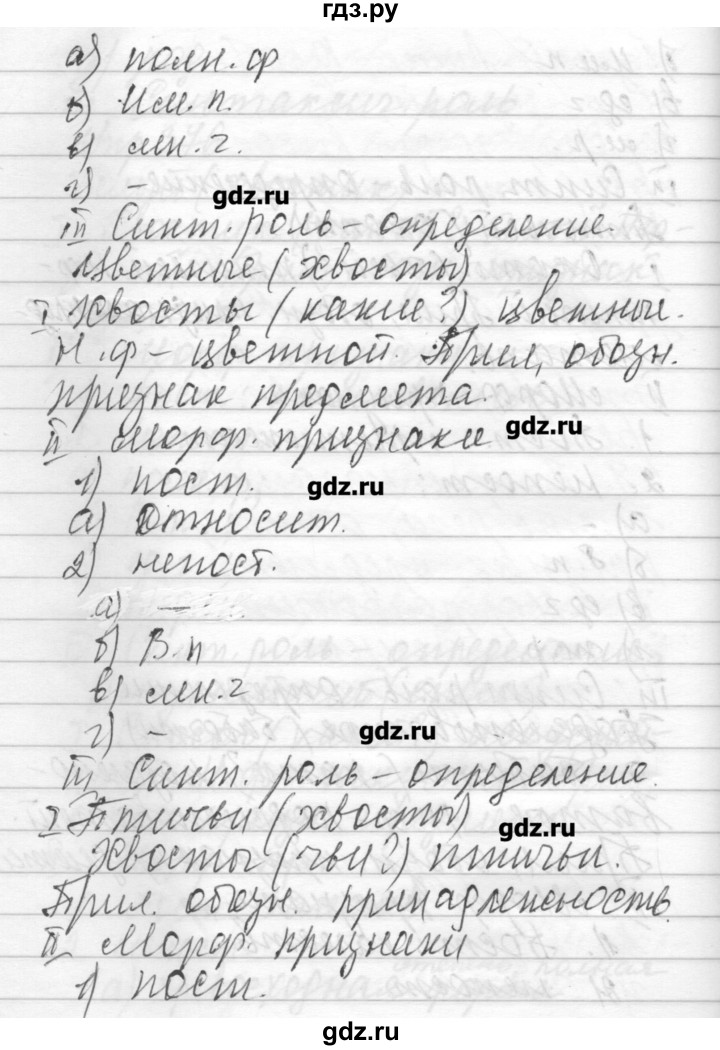 гдз.ру
а) полн. ф
б) Им. п.
в) мн. ч.
г) -
gdz.ru
III Синт. роль - определение.
Цветные (хвосты)
I Хвосты (какие?) цветные.
Н. ф - цветной. Прил, обозн.
признак предмета.
II Морф. признаки
gdz.ru
1) пост.
gdz.ru
а) относит.
2) непост.
а) —
б) В. п
в) мн. ч
г) -
gdz.ru
III Синт. роль - определение.
I Птичьи (хвосты)
gdz.ru
Хвосты (чьи?) птичьи.
Прил. обозн. принадлежность.
II Морф. признаки
1) пост.
gdz.ru